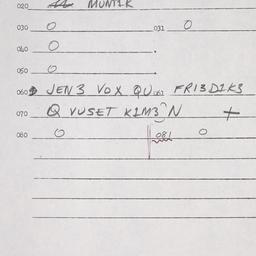 020 MUNTER
030 O 031 O
040 O
050 O
060 JEN3 VOX QU 061 FRI3D1K3
070 Q VUSET K1M3N +
080 O 081 O